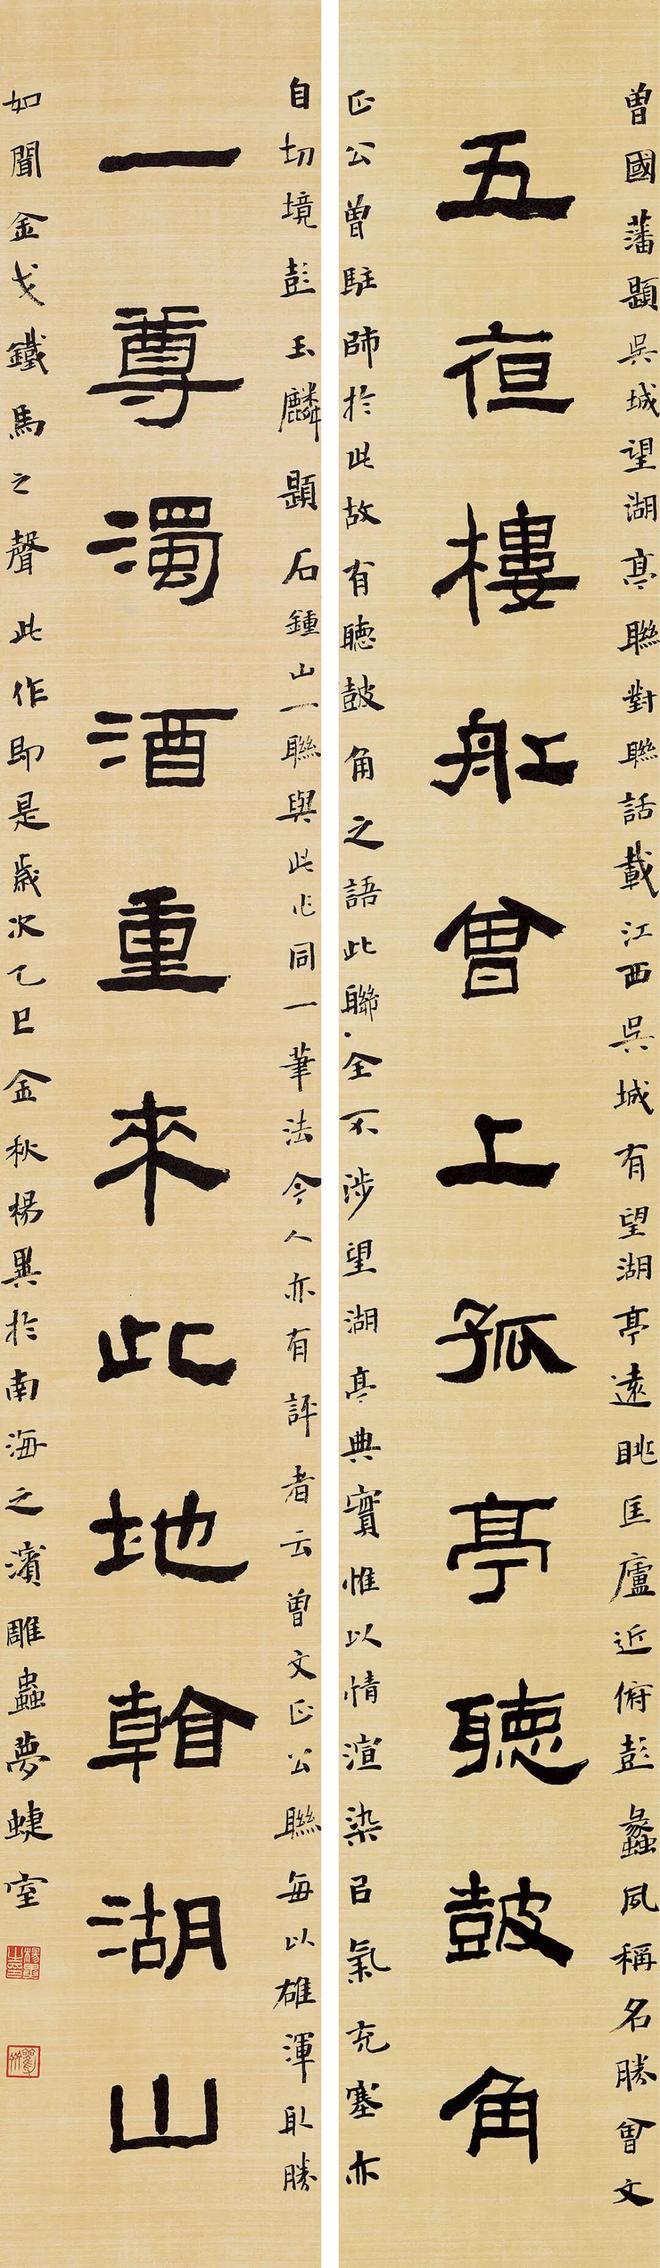 曾國藩題吳城望湖亭聯對聯話載江西吳城有望湖亭遠眺匡廬近俯彭蠡夙稱名勝曾文
五夜樓舡曾上孤亭聽皷角
正公曾駐師於此故有聽皷角之語此聯全不涉望湖亭典實惟以情渲染㠯氣充塞亦
自切境彭玉麟題石鍾山一聯與此作同一筆法今人亦有評者云曾文正公聯每以雄渾取勝
一尊濁酒重來此地看湖山
如聞金戈鐵馬之聲此作即是歲次乙巳金秋楊異於南海之濱雕蟲夢蜨室